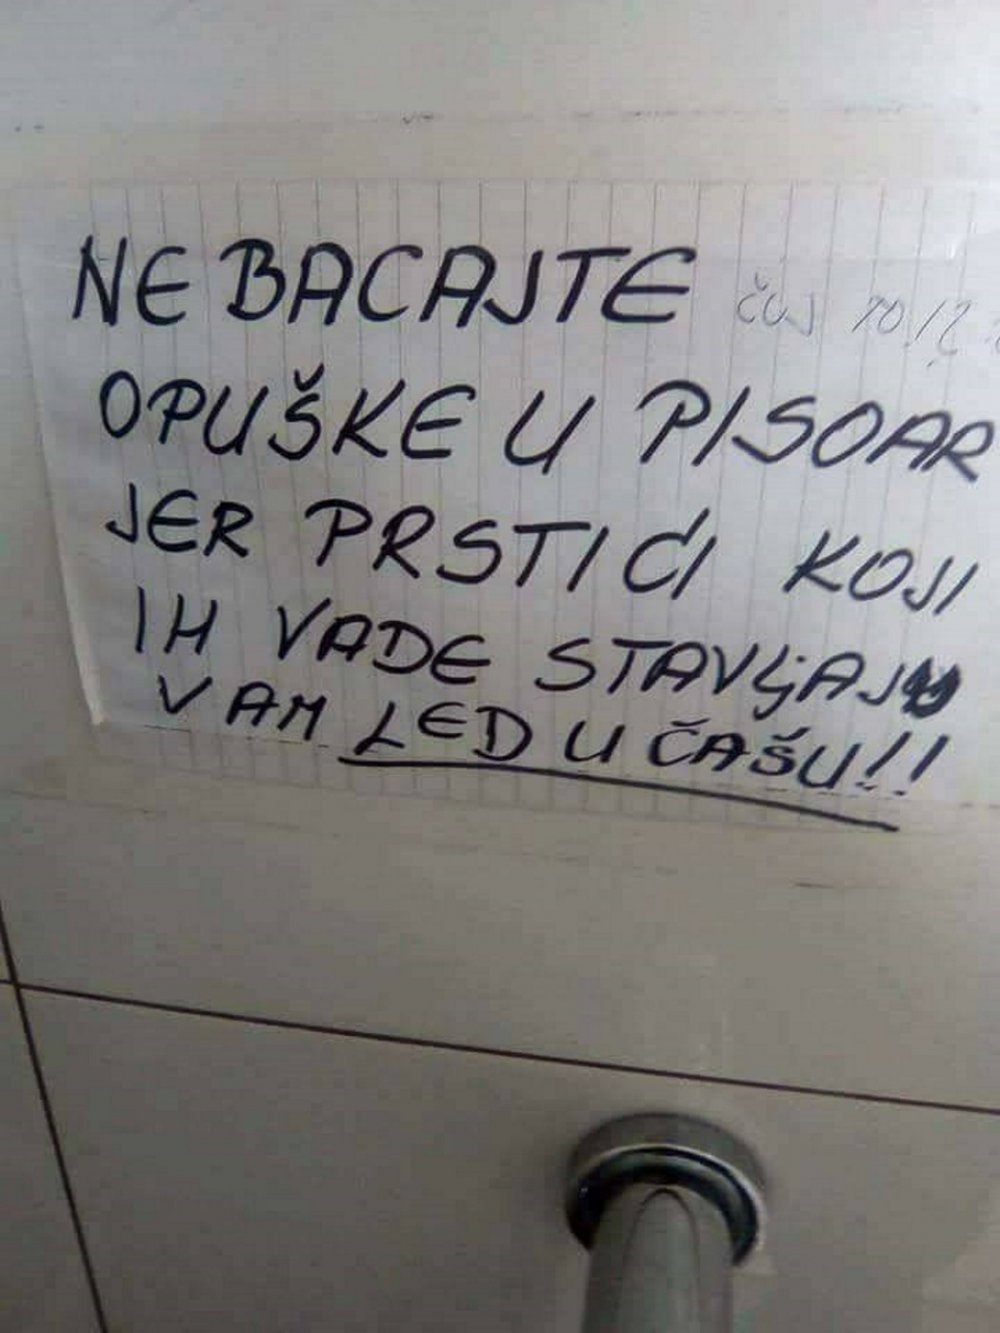 NE BACAJTE
čuj
OPUŠKE U PISOAR
JER PRSTIĆI KOJI
IH VADE STAVLJAJU
VAM LED U ČAŠU!!